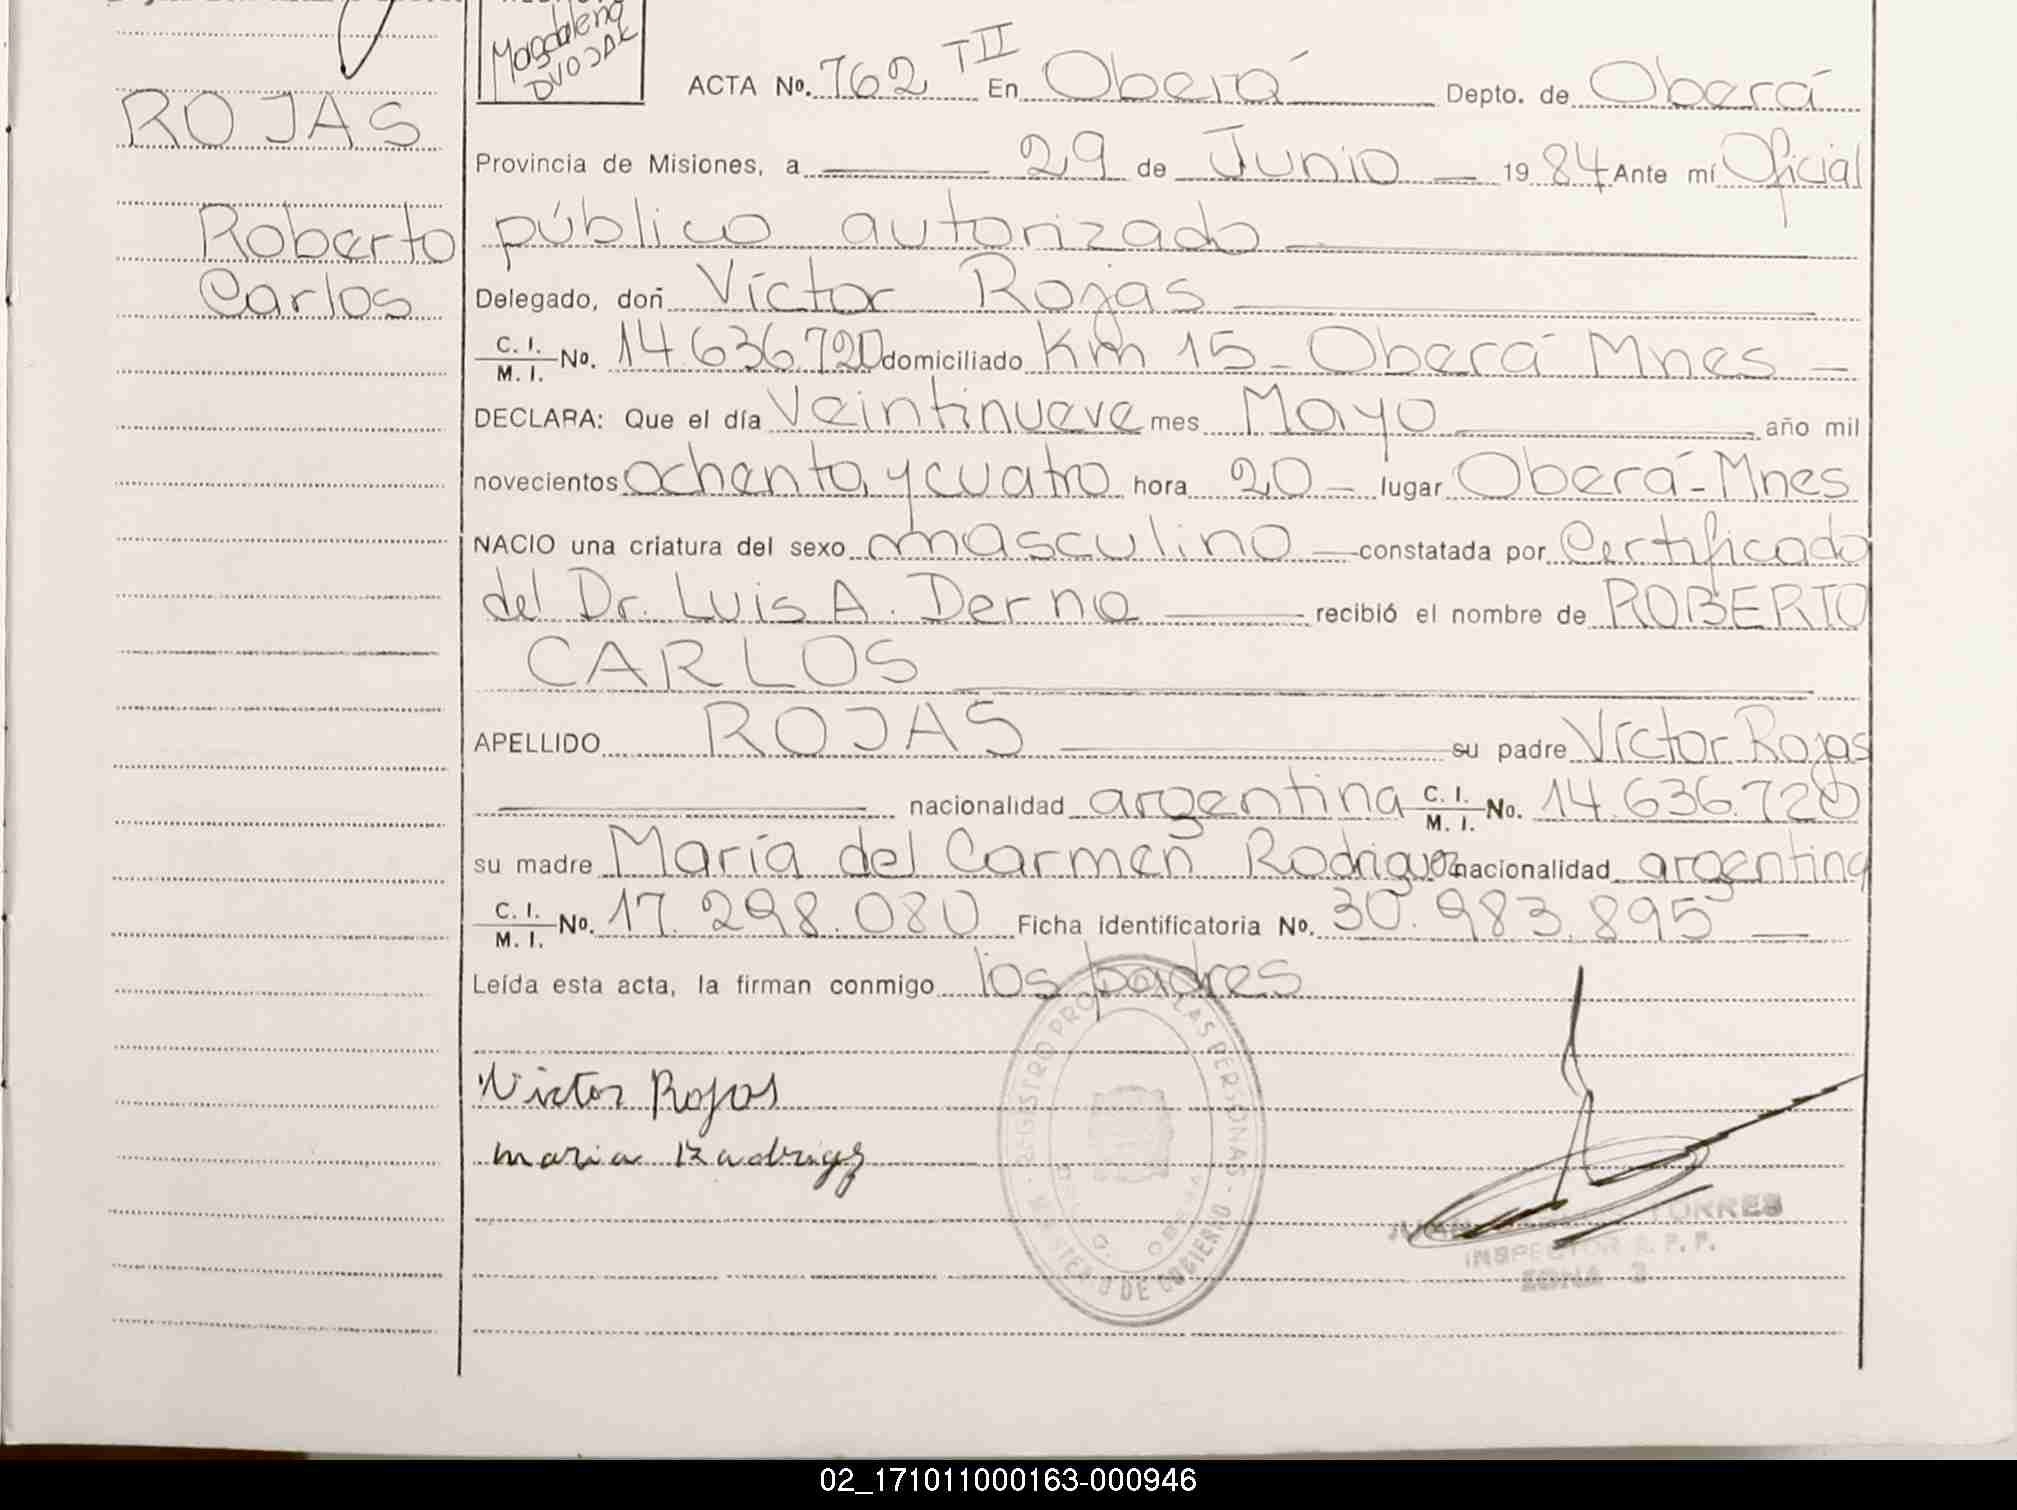 Magdalena
DVOJAK
ROJAS
Roberto
Carlos
ACTA No. 762 TII En Oberá Depto. de Oberá
Provincia de Misiones, a 29 de Junio 1984 Ante mí Oficial
público autorizado
Delegado, doñ Víctor Rojas
C. I.
M. I. No. 14.636.720 domiciliado Km 15 - Oberá Mnes -
DECLARA: Que el día Veintinueve mes Mayo año mil
novecientos ochenta y cuatro hora 20 - lugar Oberá - Mnes
NACIO una criatura del sexo masculino constatada por Certificado
del Dr. Luis A. Derna recibió el nombre de ROBERTO
CARLOS
APELLIDO ROJAS su padre Víctor Rojas
nacionalidad argentina C. I.
M. I. No. 14.636.720
su madre María del Carmen Rodriguez nacionalidad argentina
C. I.
M. I. No. 17.298.080 Ficha identificatoria No. 30.983.895
Leída esta acta, la firman conmigo los padres
Victor Rojas
maria Radrigz
REGISTRO LAS PERSONAS
DE GOBIERNO
TORRES
INSPECTOR
ZONA 3
02_171011000163-000946